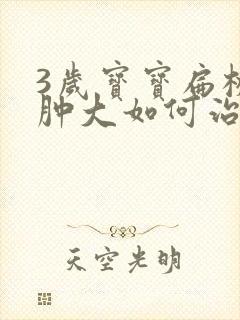 3歲寶寶扁桃
肿大如何治
天空光明